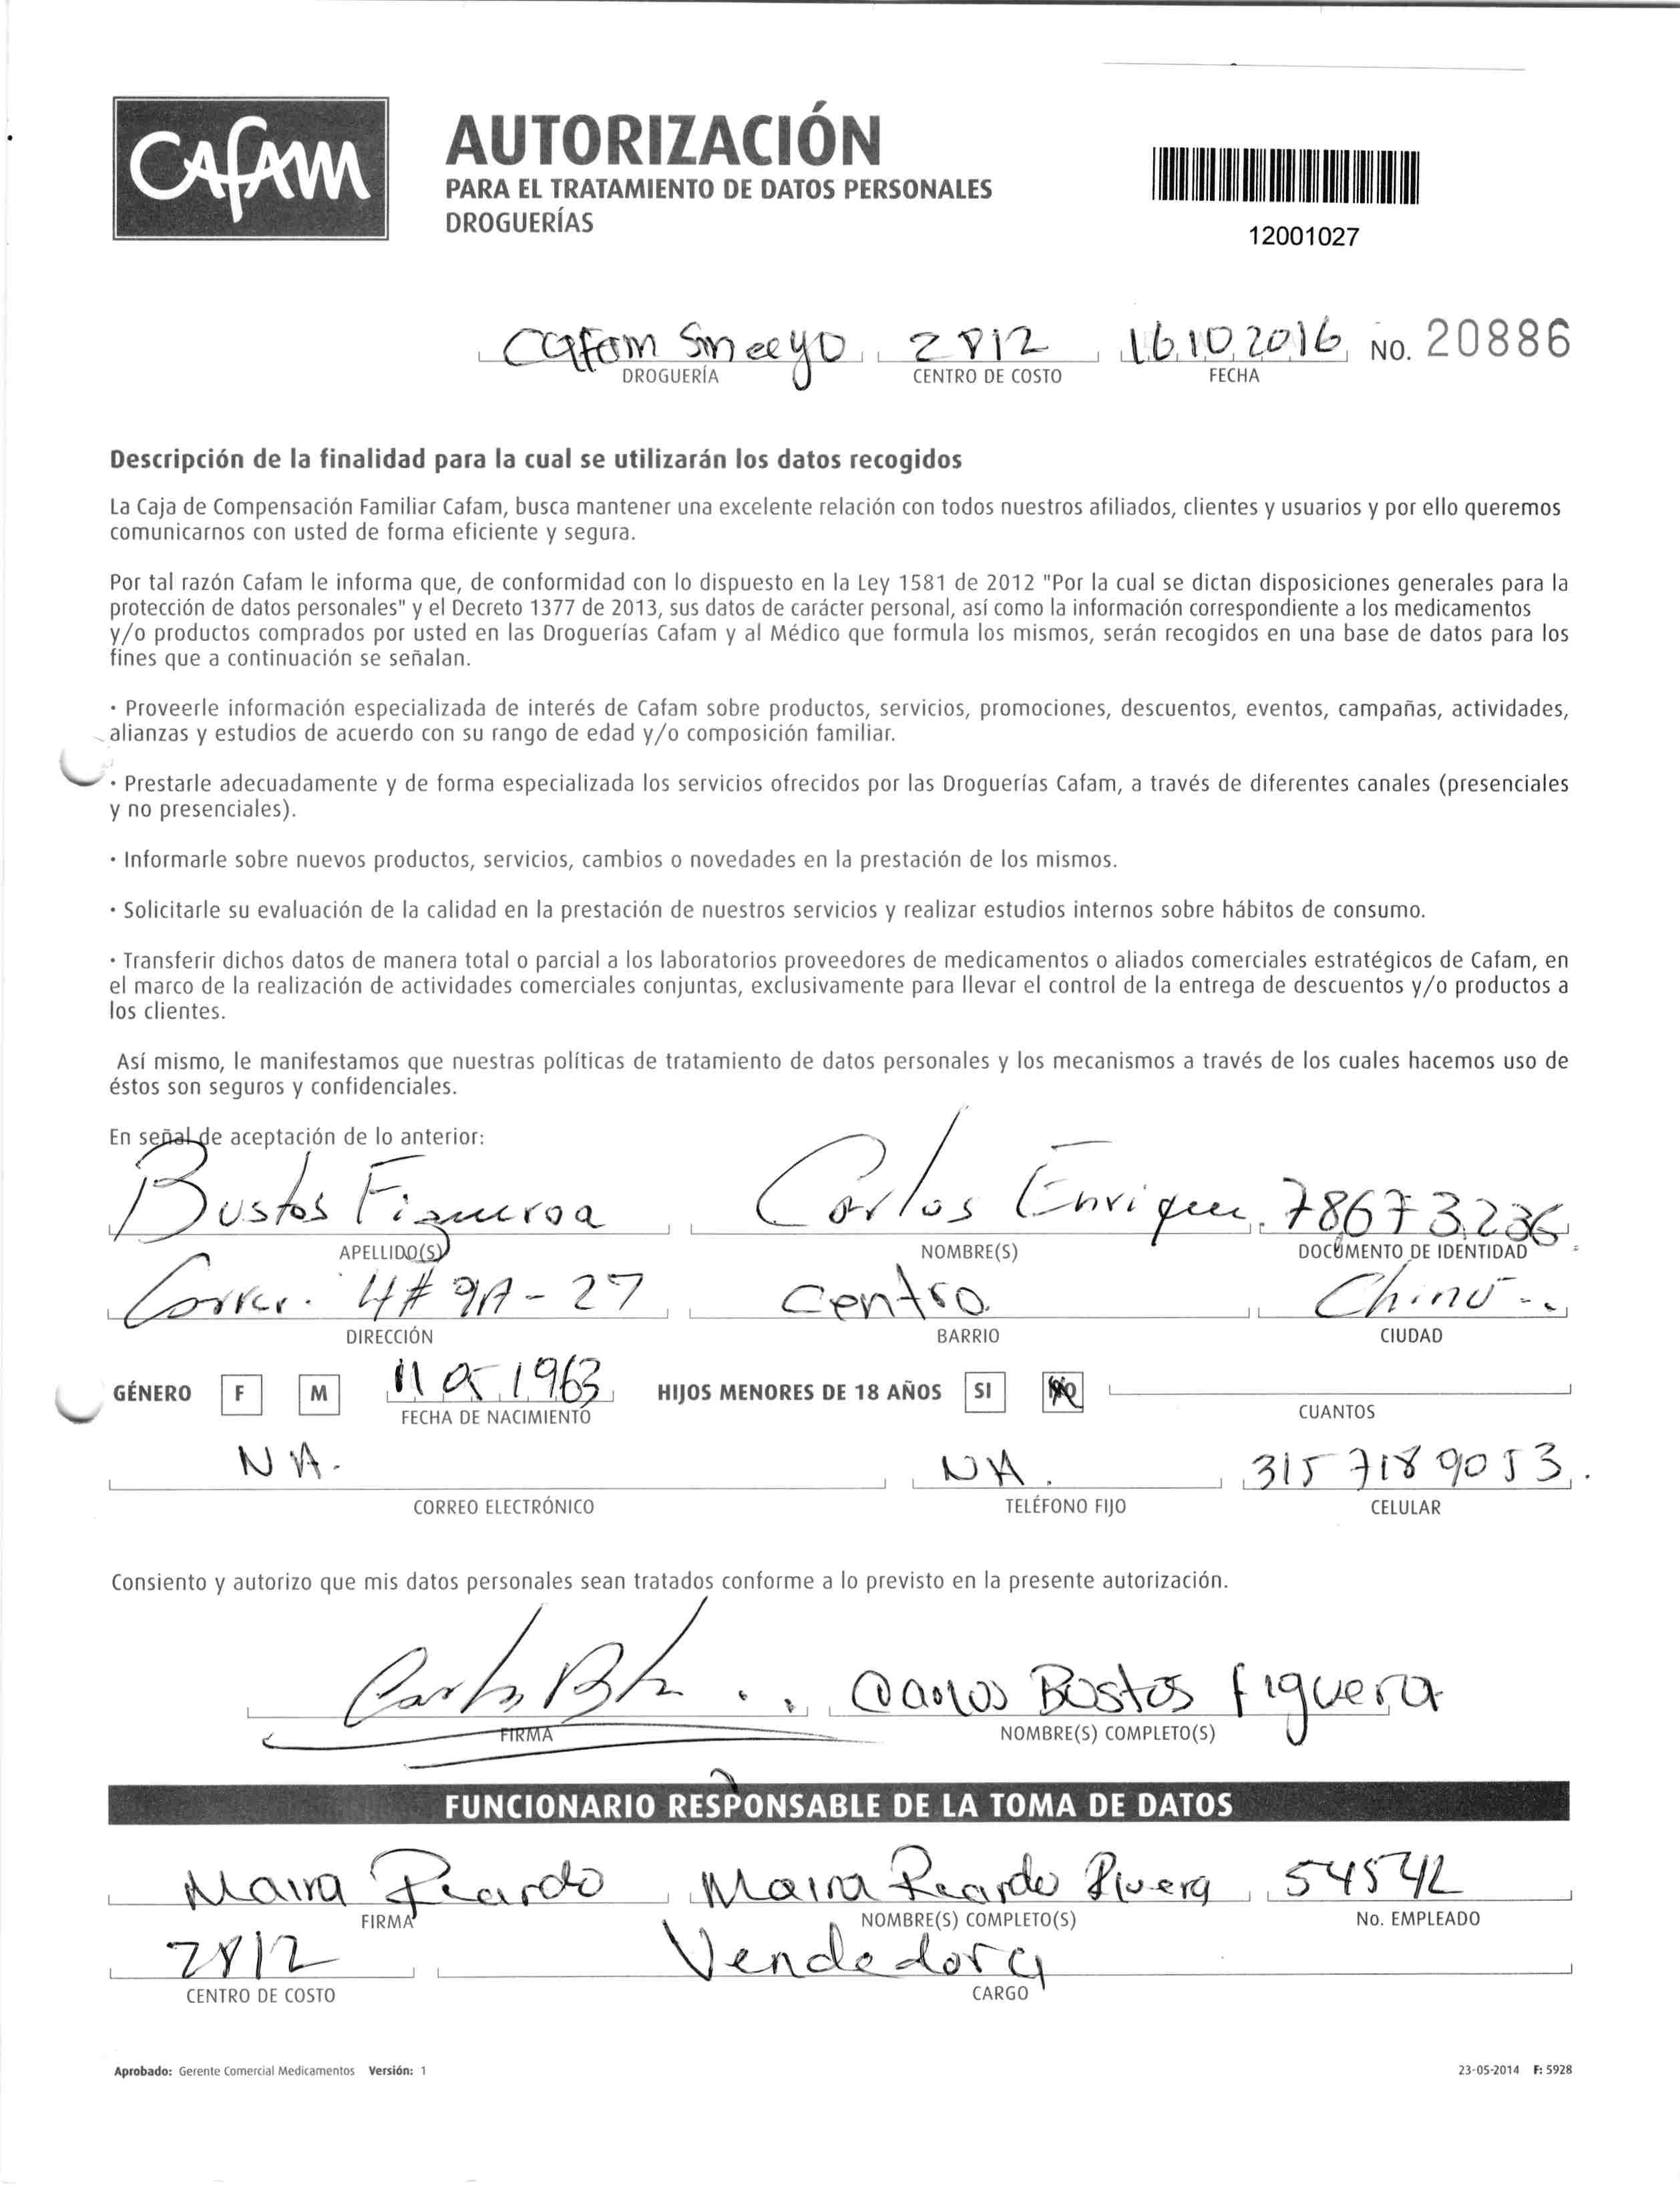 CAFAM
AUTORIZACIÓN
PARA EL TRATAMIENTO DE DATOS PERSONALES
DROGUERÍAS
12001027
Cafam 2812 16 10 2016 NO. 20886
DROGUERÍA CENTRO DE COSTO FECHA
Descripción de la finalidad para la cual se utilizarán los datos recogidos
La Caja de Compensación Familiar Cafam, busca mantener una excelente relación con todos nuestros afiliados, clientes y usuarios y por ello queremos
comunicarnos con usted de forma eficiente y segura.
Por tal razón Cafam le informa que, de conformidad con lo dispuesto en la Ley 1581 de 2012 "Por la cual se dictan disposiciones generales para la
protección de datos personales" y el Decreto 1377 de 2013, sus datos de carácter personal, así como la información correspondiente a los medicamentos
y/o productos comprados por usted en las Droguerías Cafam y al Médico que formula los mismos, serán recogidos en una base de datos para los
fines que a continuación se señalan.
· Proveerle información especializada de interés de Cafam sobre productos, servicios, promociones, descuentos, eventos, campañas, actividades,
alianzas y estudios de acuerdo con su rango de edad y/o composición familiar.
· Prestarle adecuadamente y de forma especializada los servicios ofrecidos por las Droguerías Cafam, a través de diferentes canales (presenciales
y no presenciales).
· Informarle sobre nuevos productos, servicios, cambios o novedades en la prestación de los mismos.
· Solicitarle su evaluación de la calidad en la prestación de nuestros servicios y realizar estudios internos sobre hábitos de consumo.
· Transferir dichos datos de manera total o parcial a los laboratorios proveedores de medicamentos o aliados comerciales estratégicos de Cafam, en
el marco de la realización de actividades comerciales conjuntas, exclusivamente para llevar el control de la entrega de descuentos y/o productos a
los clientes.
Así mismo, le manifestamos que nuestras políticas de tratamiento de datos personales y los mecanismos a través de los cuales hacemos uso de
éstos son seguros y confidenciales.
En señal de aceptación de lo anterior:
Bustos Figueroa Carlos Enrique 78673236
APELLIDO(S) NOMBRE(S) DOCUMENTO DE IDENTIDAD
Carrer. 4# 9A-27 Centro. Chinú
DIRECCIÓN BARRIO CIUDAD
GÉNERO F M 11 05 1963 HIJOS MENORES DE 18 AÑOS SI NO
FECHA DE NACIMIENTO CUANTOS
NA. NA. 315 7189053.
CORREO ELECTRÓNICO TELÉFONO FIJO CELULAR
Consiento y autorizo que mis datos personales sean tratados conforme a lo previsto en la presente autorización.
Carlos Bustos Figuera
FIRMA NOMBRE(S) COMPLETO(S)
FUNCIONARIO RESPONSABLE DE LA TOMA DE DATOS
Maira Ricardo Maira Ricardo Rivera 54542
FIRMA NOMBRE(S) COMPLETO(S) No. EMPLEADO
2812 Vendedora
CENTRO DE COSTO CARGO
Aprobado: Gerente Comercial Medicamentos Versión: 1 23-05-2014 F: 5928